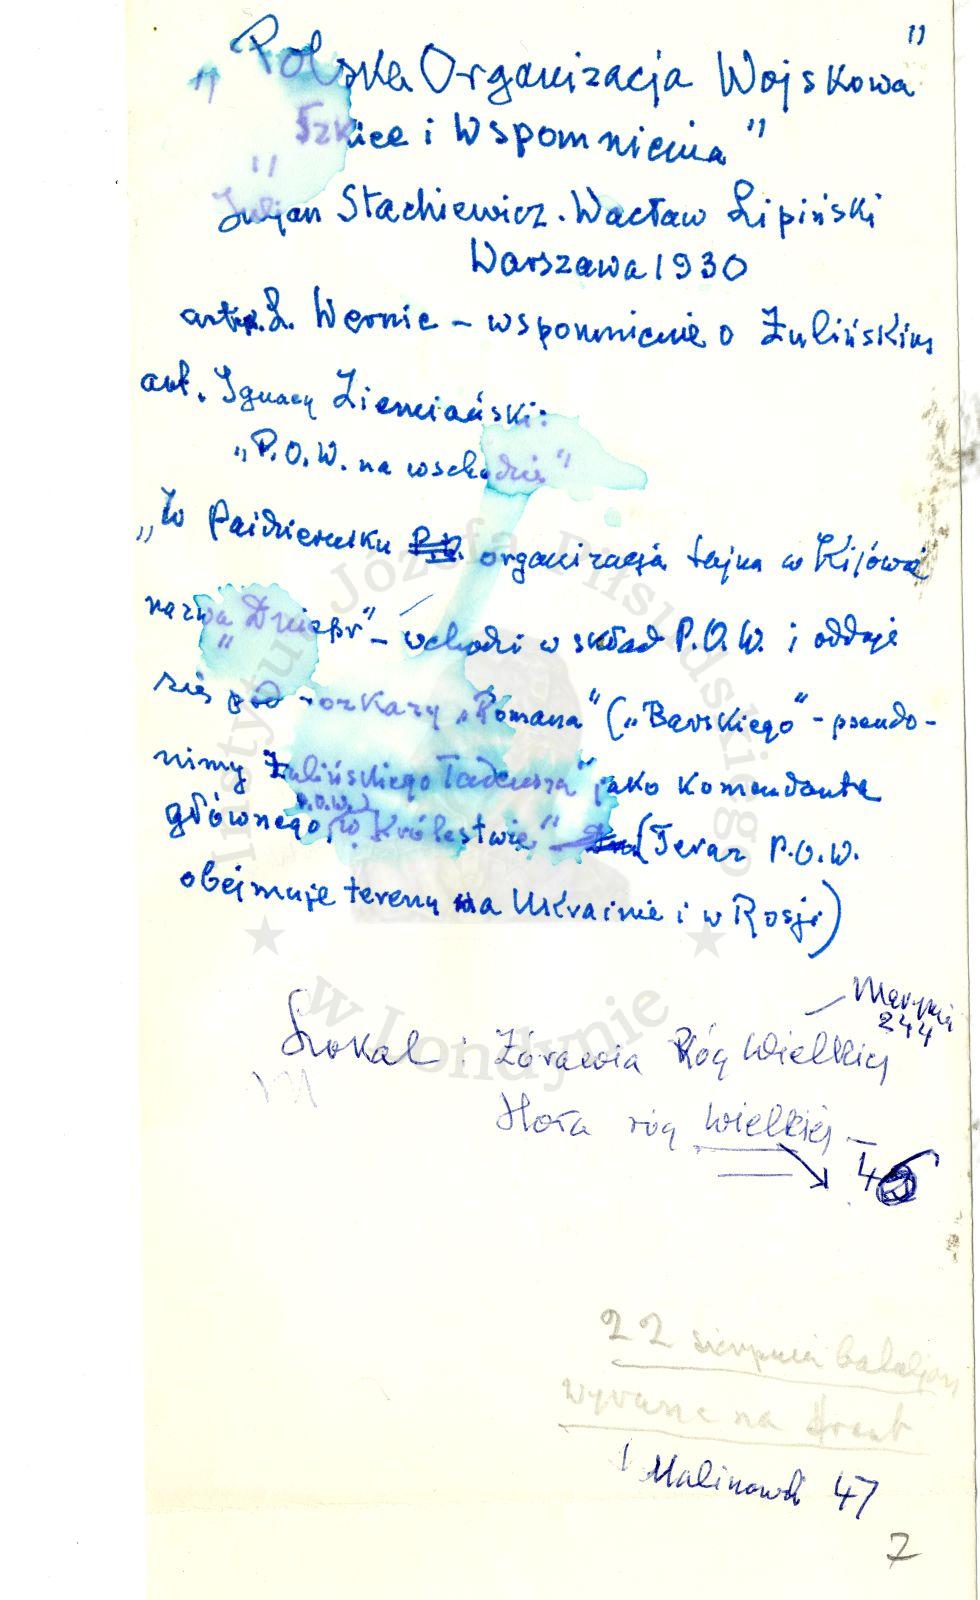 "Polska Organizacja Wojskowa"
"Szkice i Wspomnienia"
Juljan Stachiewicz. Wacław Lipiński
Warszawa 1930
L. Wernic – wspomnienie o Żulińskim
art. Ignacy Ziemiański:
"P.O.W. na wschodzie"
"W Październiku organizacja tajna w Kijowie
nazwa "Dniepr" – wchodzi w skład P.O.W. i oddaje
się pod rozkazy "Romana" ("Barskiego" - pseudo-
nimy Żulińskiego Tadeusza" jako komendanta
głównego P.O.W. (w Królestwie)" (Teraz P.O.W.
obejmuje tereny na Ukrainie i w Rosji)
244
Lokal: Żórawia Róg Wielkiej
Hoża róg Wielkiej –
22 sierpnia bataljon
wyrusza na front
Malinowski 47
7
Instytut Józefa Piłsudskiego
★ w Londynie ★